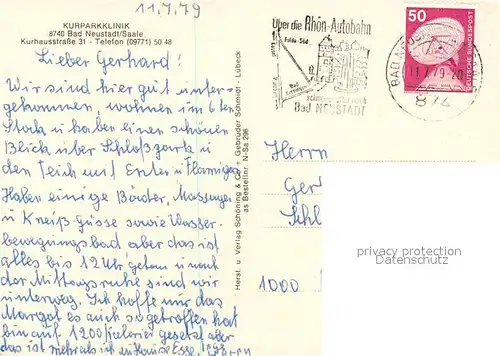 11.7.79
KURPARKKLINIK
8740 Bad Neustadt/Saale
Kurhausstraße 31 - Telefon (09771) 50 48
Lieber Gerhard!
Wir sind hier gut unter-
gekommen, wohnen im 6ten
Stock u haben einen schönen
Blick über Schloßgarten u
den Teich mit Enten u Flamingos
Haben einige Bäder, Massagen
u Kneiß Güsse sowie Wasser
bewegungsbad aber das ist
alles bis 12 Uhr getan u nach
der Mittagsruhe sind wir
unterwegs. Ich hoffe nur das
Margot es auch so getroffen hat
bin auf 1200 Kalorien gesetzt aber
das ist mehr als ich zu Hause Esse
Herst. u. Verlag Schöning & Co + Gebrüder Schmidt - Lübeck
as Bestellnr. N-Sa 296
Über die Rhön-Autobahn
Fulda-Süd
Bad
BAD NEUSTADT
50
DEUTSCHE BUNDESPOST
BAD
11.7.79-20
874
Herrn
Ger
Schl
1000
privacy protection
Datenschutz